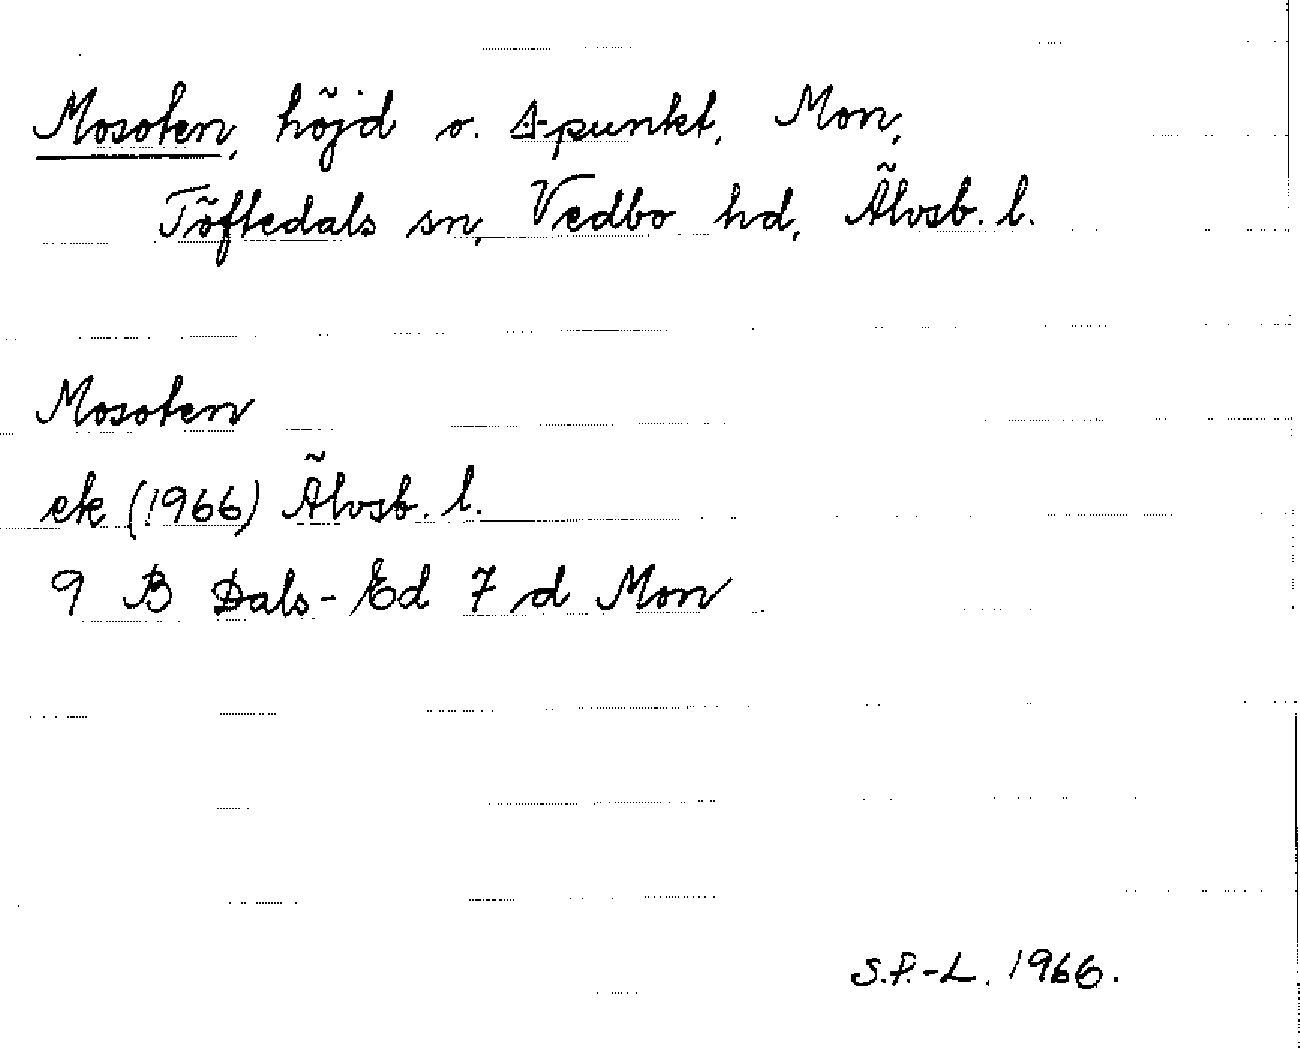 Mosoten, höjd o. △-punkt, Mon,
Töftedals sn, Vedbo hd, Älvsb. l.
Mosoten
ek (1966) Älvsb. l.
9 B Dals-Ed 7 d Mon
S.P.-L. 1966.